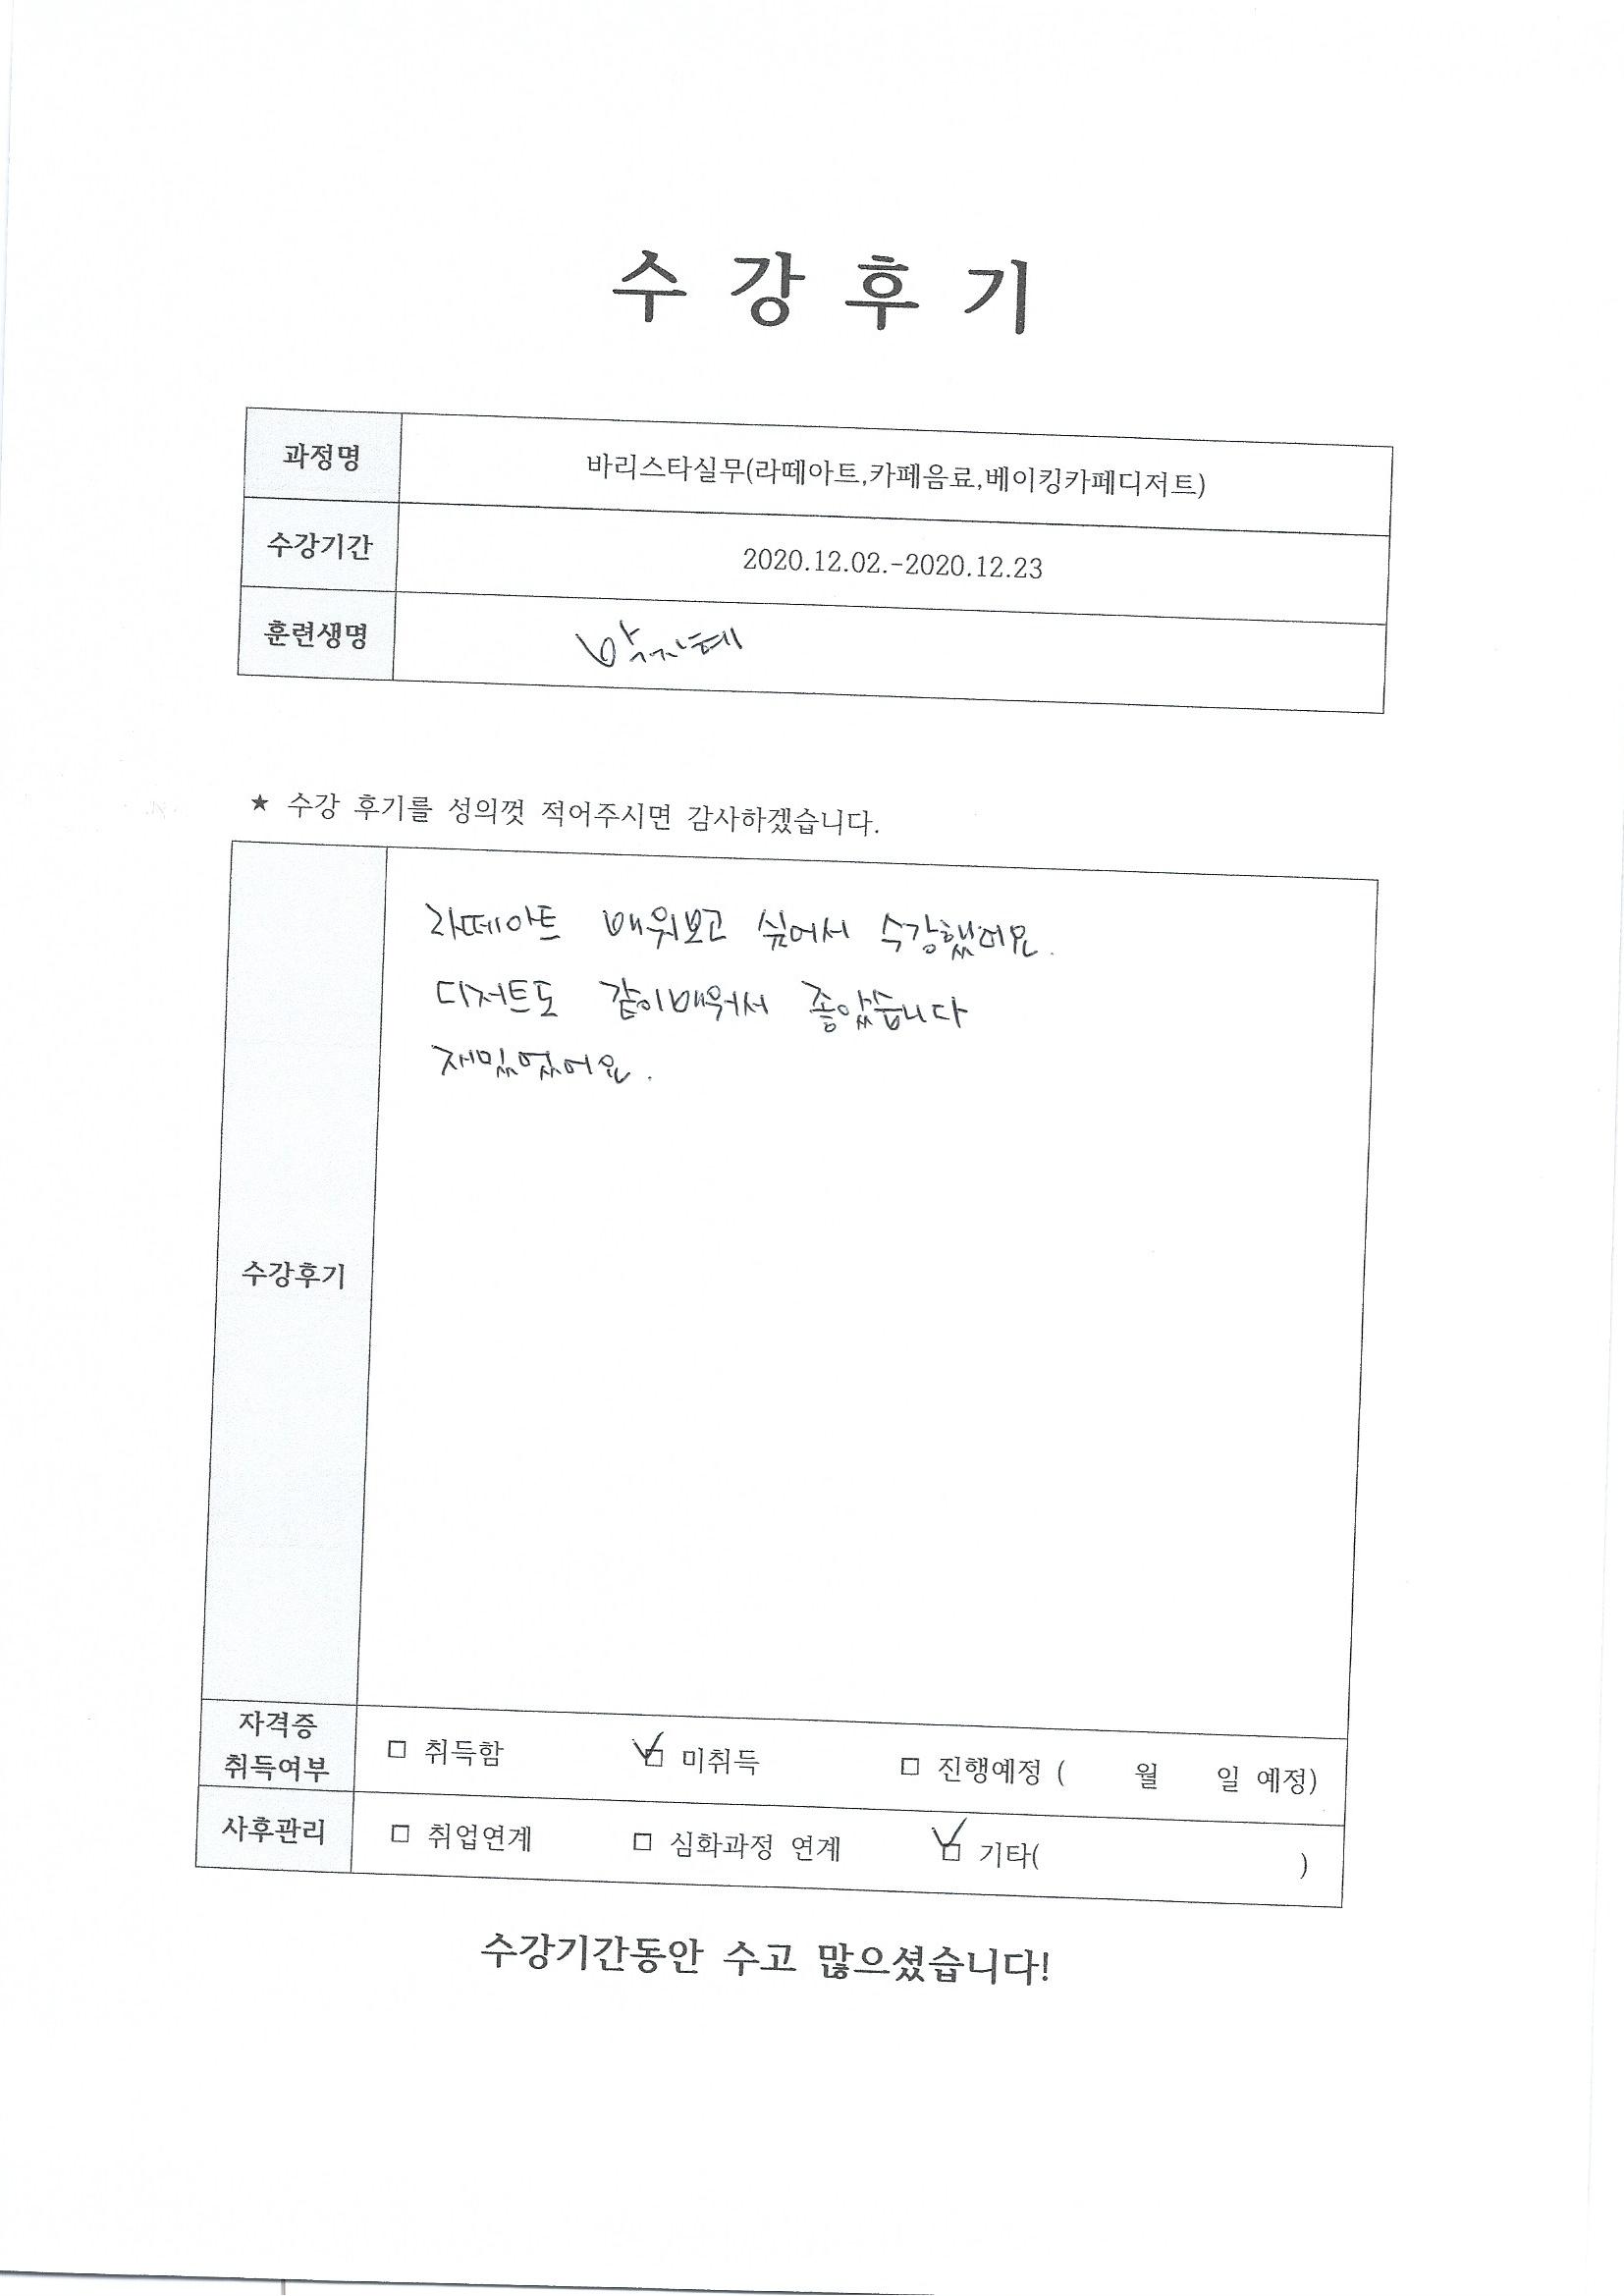 수 강 후 기
과정명 바리스타실무(라떼아트,카페음료,베이킹카페디저트)
수강기간 2020.12.02.-2020.12.23
훈련생명
★ 수강 후기를 성의껏 적어주시면 감사하겠습니다.
라떼아트 배워보고 싶어서 수강했어요.
디저트도 같이배워서 좋았습니다
재밌었어요.
수강후기
자격증
취득여부
□ 취득함 ☑ 미취득 □ 진행예정 ( 월 일 예정)
사후관리 □ 취업연계 □ 심화과정 연계 ☑ 기타( )
수강기간동안 수고 많으셨습니다!